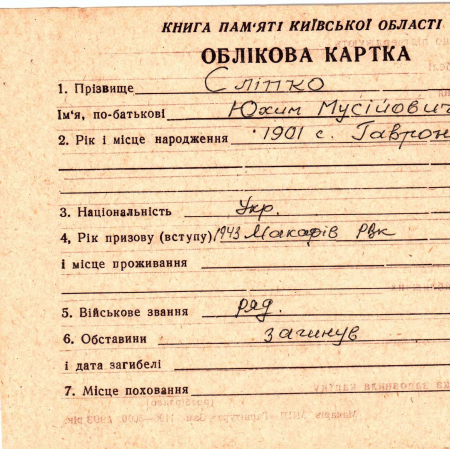 КНИГА ПАМ'ЯТІ КИЇВСЬКОЇ ОБЛАСТІ
ОБЛІКОВА КАРТКА
1. Прізвище Сліпко
Ім'я, по-батькові Юхим Мусійович
2. Рік і місце народження 1901 с. Гаврон
3. Національність Укр.
4, Рік призову (вступу) 1943 Макарів Рвк
і місце проживання
5. Військове звання ряд.
6. Обставини загинув
і дата загибелі
7. Місце поховання